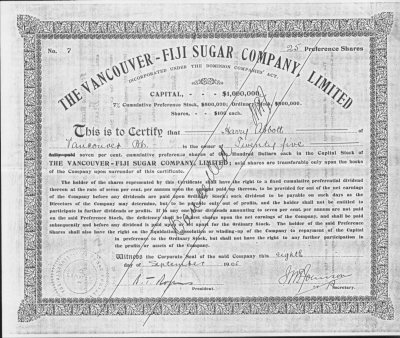 No. 7
25 Preference Shares
THE VANCOUVER-FIJI SUGAR COMPANY, LIMITED
INCORPORATED UNDER THE DOMINION COMPANIES' ACT.
CAPITAL, - - - $1,000,000,
7% Cumulative Preference Stock, $500,000; Ordinary Stock, $500,000.
Shares, - - $100 each.
This is to Certify that Harry Abbott of
Vancouver is the owner of Twenty five
fully-paid seven per cent. cumulative preference shares of One Hundred Dollars each in the Capital Stock of
THE VANCOUVER-FIJI SUGAR COMPANY, LIMITED; said shares are transferable only upon the books
of the Company upon surrender of this certificate.
The holder of the shares represented by this Certificate shall have the right to a fixed cumulative preferential dividend
thereon at the rate of seven per cent. per annum upon the amount paid up thereon, to be provided for out of the net earnings
of the Company before any dividends are paid upon Ordinary Stock; such dividend to be payable on such days as the
Directors of the Company may determine, but to be payable only out of profits, and the holder shall not be entitled to
participate in further dividends or profits. If in any year dividends amounting to seven per cent. per annum are not paid
on the said Preference Stock, the deficiency shall be a charge upon the net earnings of the Company, and shall be paid
subsequently and before any dividend is paid upon or set apart for the Ordinary Stock. The holder of the said Preference
Shares shall also have the right on the liquidation, dissolution or winding-up of the Company to repayment of the Capital
in preference to the Ordinary Stock, but shall not have the right to any further participation in
the profits or assets of the Company.
Witness the Corporate Seal of the said Company this eighth
day of September
President.
Secretary.